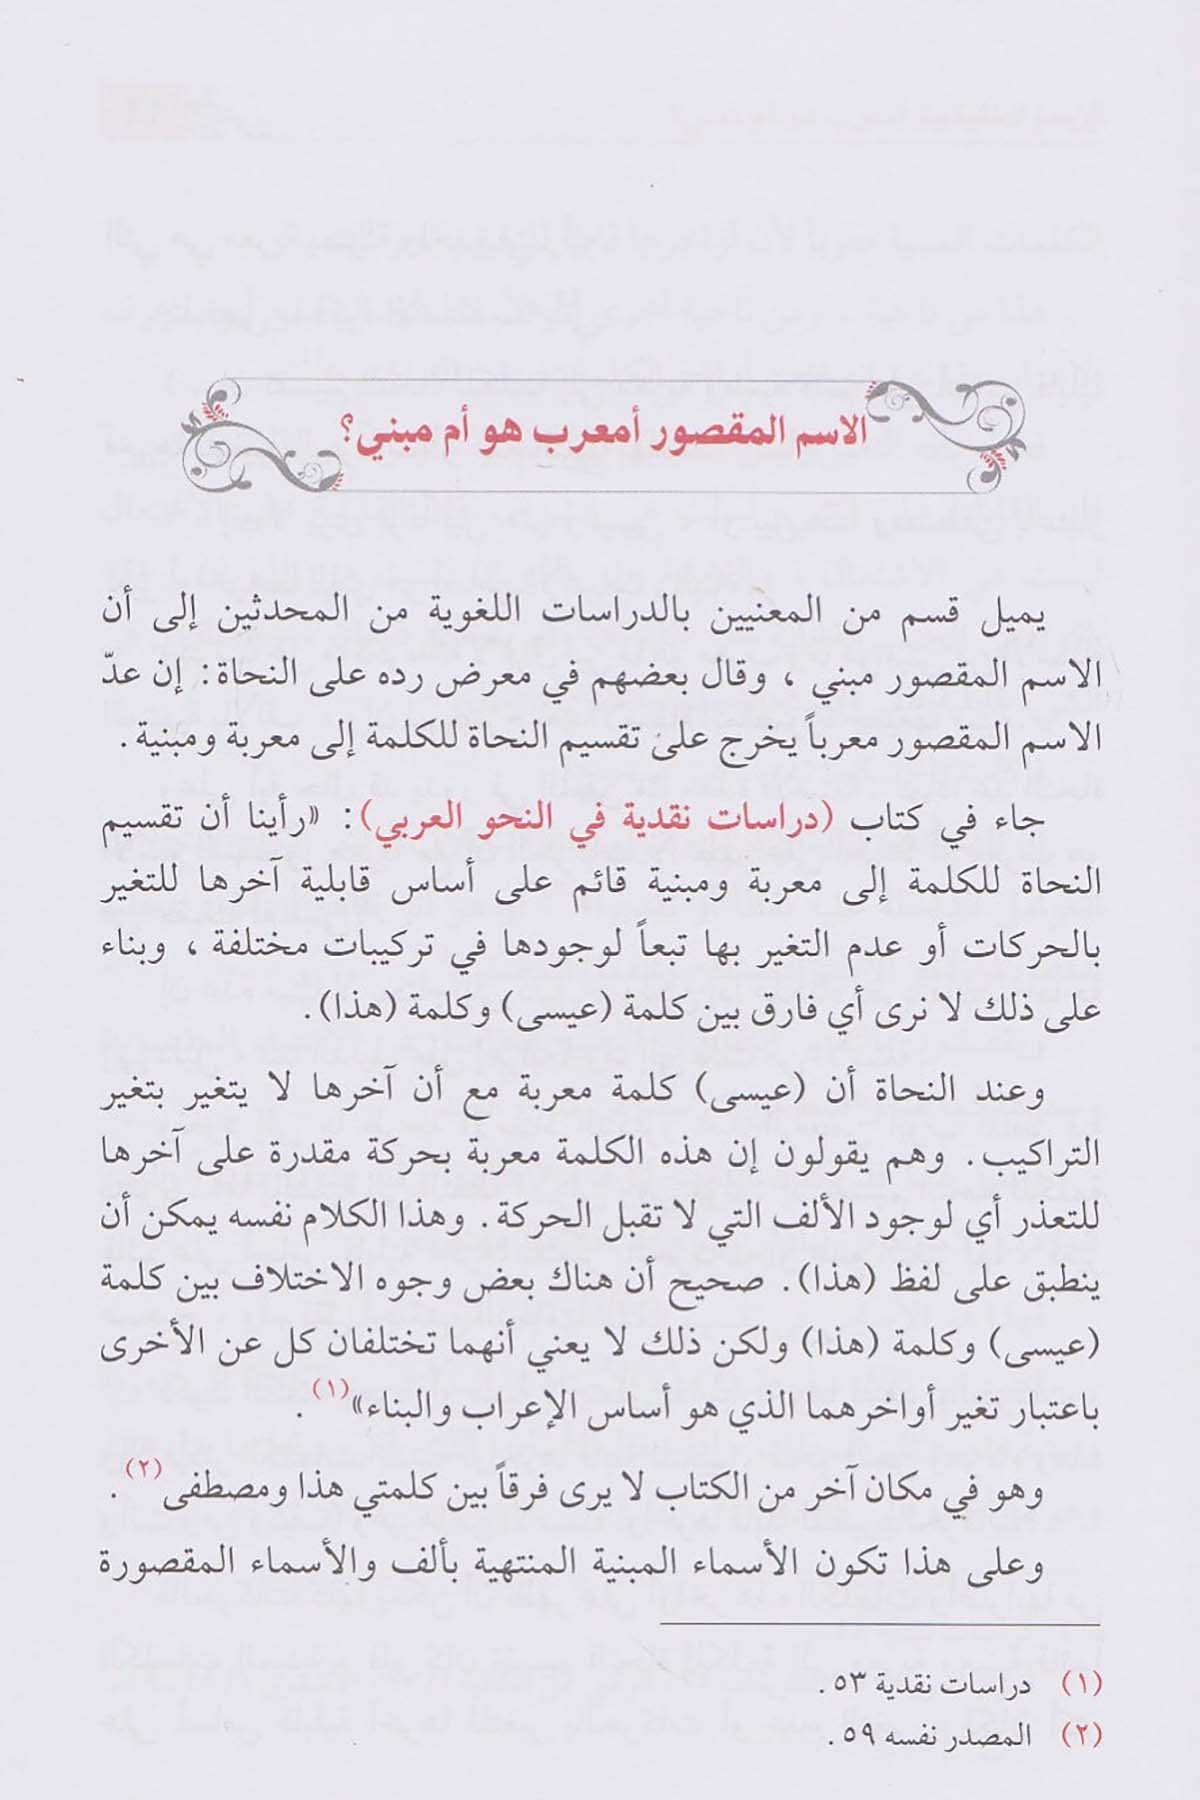 الاسم المقصور أمعرب هو أم مبني؟
يميل قسم من المعنيين بالدراسات اللغوية من المحدثين إلى أن
الاسم المقصور مبني ، وقال بعضهم في معرض رده على النحاة : إن عدّ
الاسم المقصور معرباً يخرج على تقسيم النحاة للكلمة إلى معربة ومبنية .
جاء في كتاب (دراسات نقدية في النحو العربي) : «رأينا أن تقسيم
النحاة للكلمة إلى معربة ومبنية قائم على أساس قابلية آخرها للتغير
بالحركات أو عدم التغير بها تبعاً لوجودها في تركيبات مختلفة ، وبناء
على ذلك لا نرى أي فارق بين كلمة (عيسى) وكلمة (هذا) .
وعند النحاة أن (عيسى) كلمة معربة مع أن آخرها لا يتغير بتغير
التراكيب . وهم يقولون إن هذه الكلمة معربة بحركة مقدرة على آخرها
للتعذر أي لوجود الألف التي لا تقبل الحركة . وهذا الكلام نفسه يمكن أن
ينطبق على لفظ (هذا) . صحيح أن هناك بعض وجوه الاختلاف بين كلمة
(عيسى) وكلمة (هذا) ولكن ذلك لا يعني أنهما تختلفان كل عن الأخرى
باعتبار تغير أواخرهما الذي هو أساس الإعراب والبناء»(١) .
وهو في مكان آخر من الكتاب لا يرى فرقاً بين كلمتي هذا ومصطفى(٢) .
وعلى هذا تكون الأسماء المبنية المنتهية بألف والأسماء المقصورة
(١) دراسات نقدية ٥٣ .
(٢) المصدر نفسه ٥٩ .